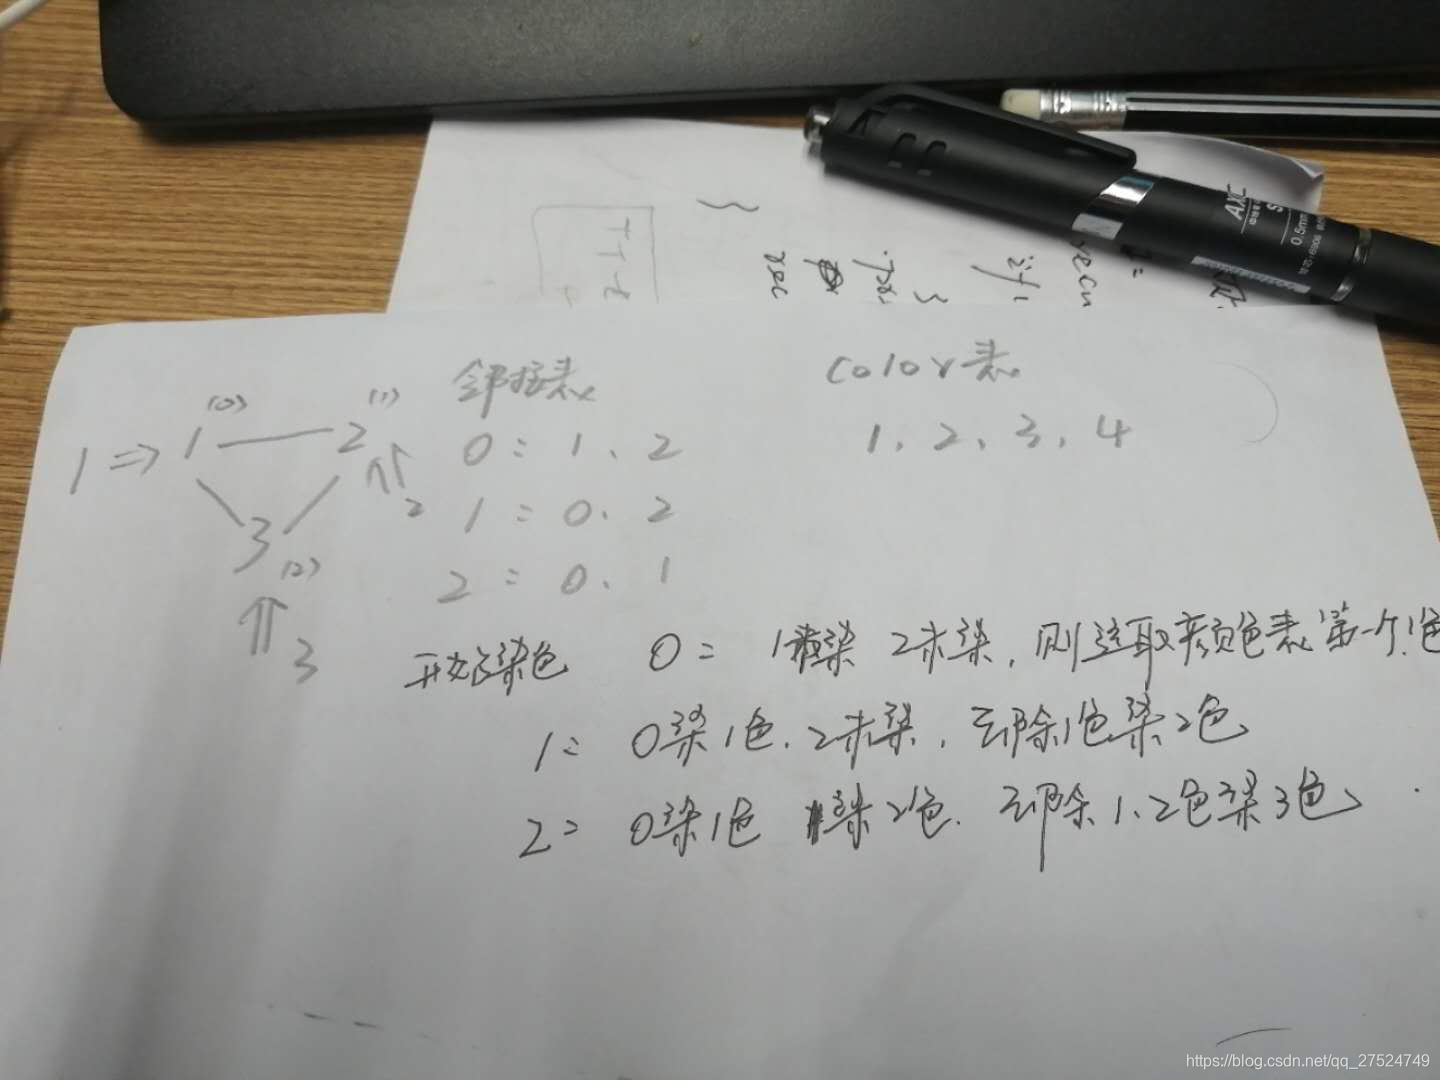 TT-2
}
rec
pos
}
if(
recu
AXC
S
0.5mm
邻接表
color表
(0)
(1)
1 => 1 — 2
0: 1、2
1、2、3、4
2
1:0.2
3
(2)
2:0、1
3
开始染色 0= 1未染 2未染,则选取颜色表第一个1色
1= 0染1色.2未染,去除1色染2色
2= 0染1色 1染2色.去除1、2色染3色
https://blog.csdn.net/qq_27524749